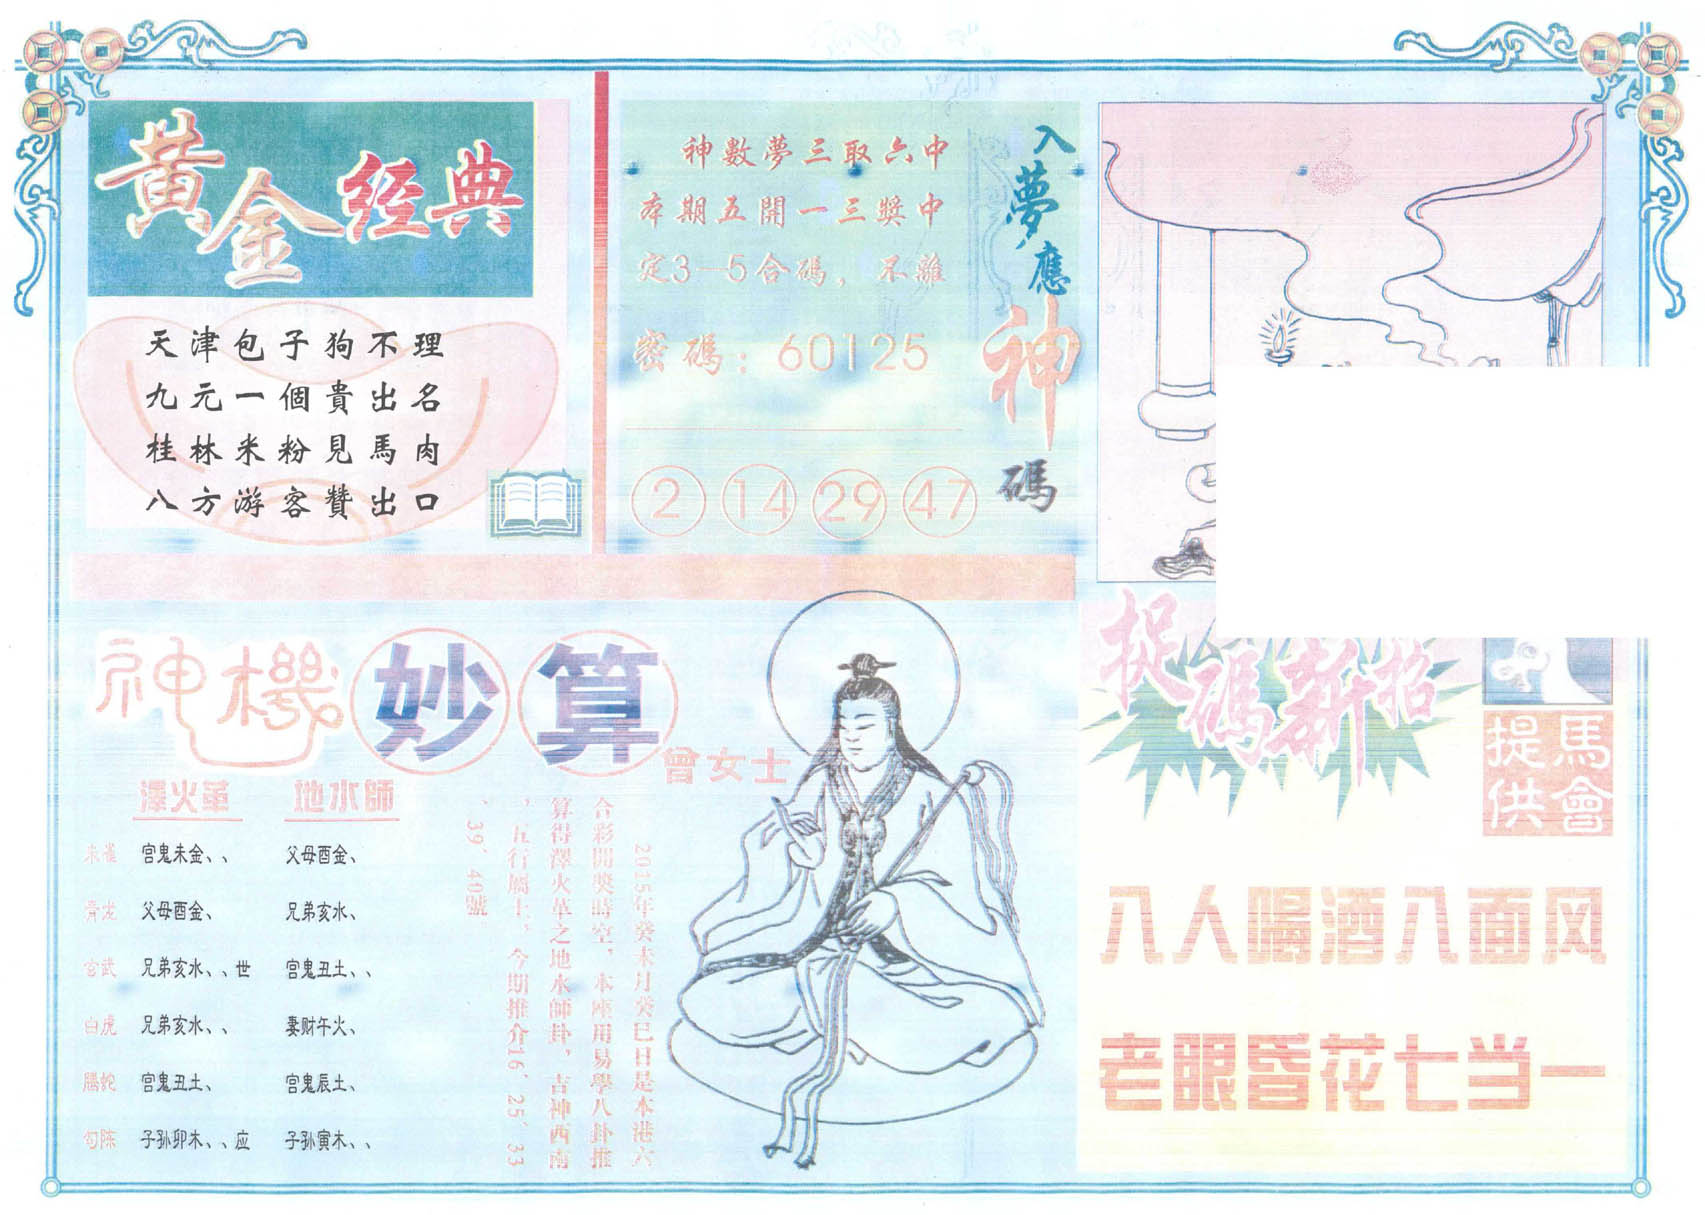 黃金经典
天津包子狗不理
九元一個貴出名
桂林米粉見馬肉
八方游客贊出口
神數夢三取六中
本期五開一三獎中
定3—5合碼，不離
密碼：60125
2 14 29 47
入夢應神碼
神機妙算
曾女士
澤火革 地水師
朱雀 官鬼未金、、 父母酉金、
青龙 父母酉金、 兄弟亥水、
玄武 兄弟亥水、、世 官鬼丑土、、
白虎 兄弟亥水、、 妻财午火、
騰蛇 官鬼丑土、 官鬼辰土、
勾陈 子孙卯木、、应 子孙寅木、、
2015年癸未月癸巳日是本港六
合彩開獎時空，本座用易學八卦推
算得澤火革之地水師卦，吉神西南
，五行屬土，今期推介16、25、33
、39、40號
捉碼新招
馬會
提供
八人喝酒八面风
老眼昏花七当一